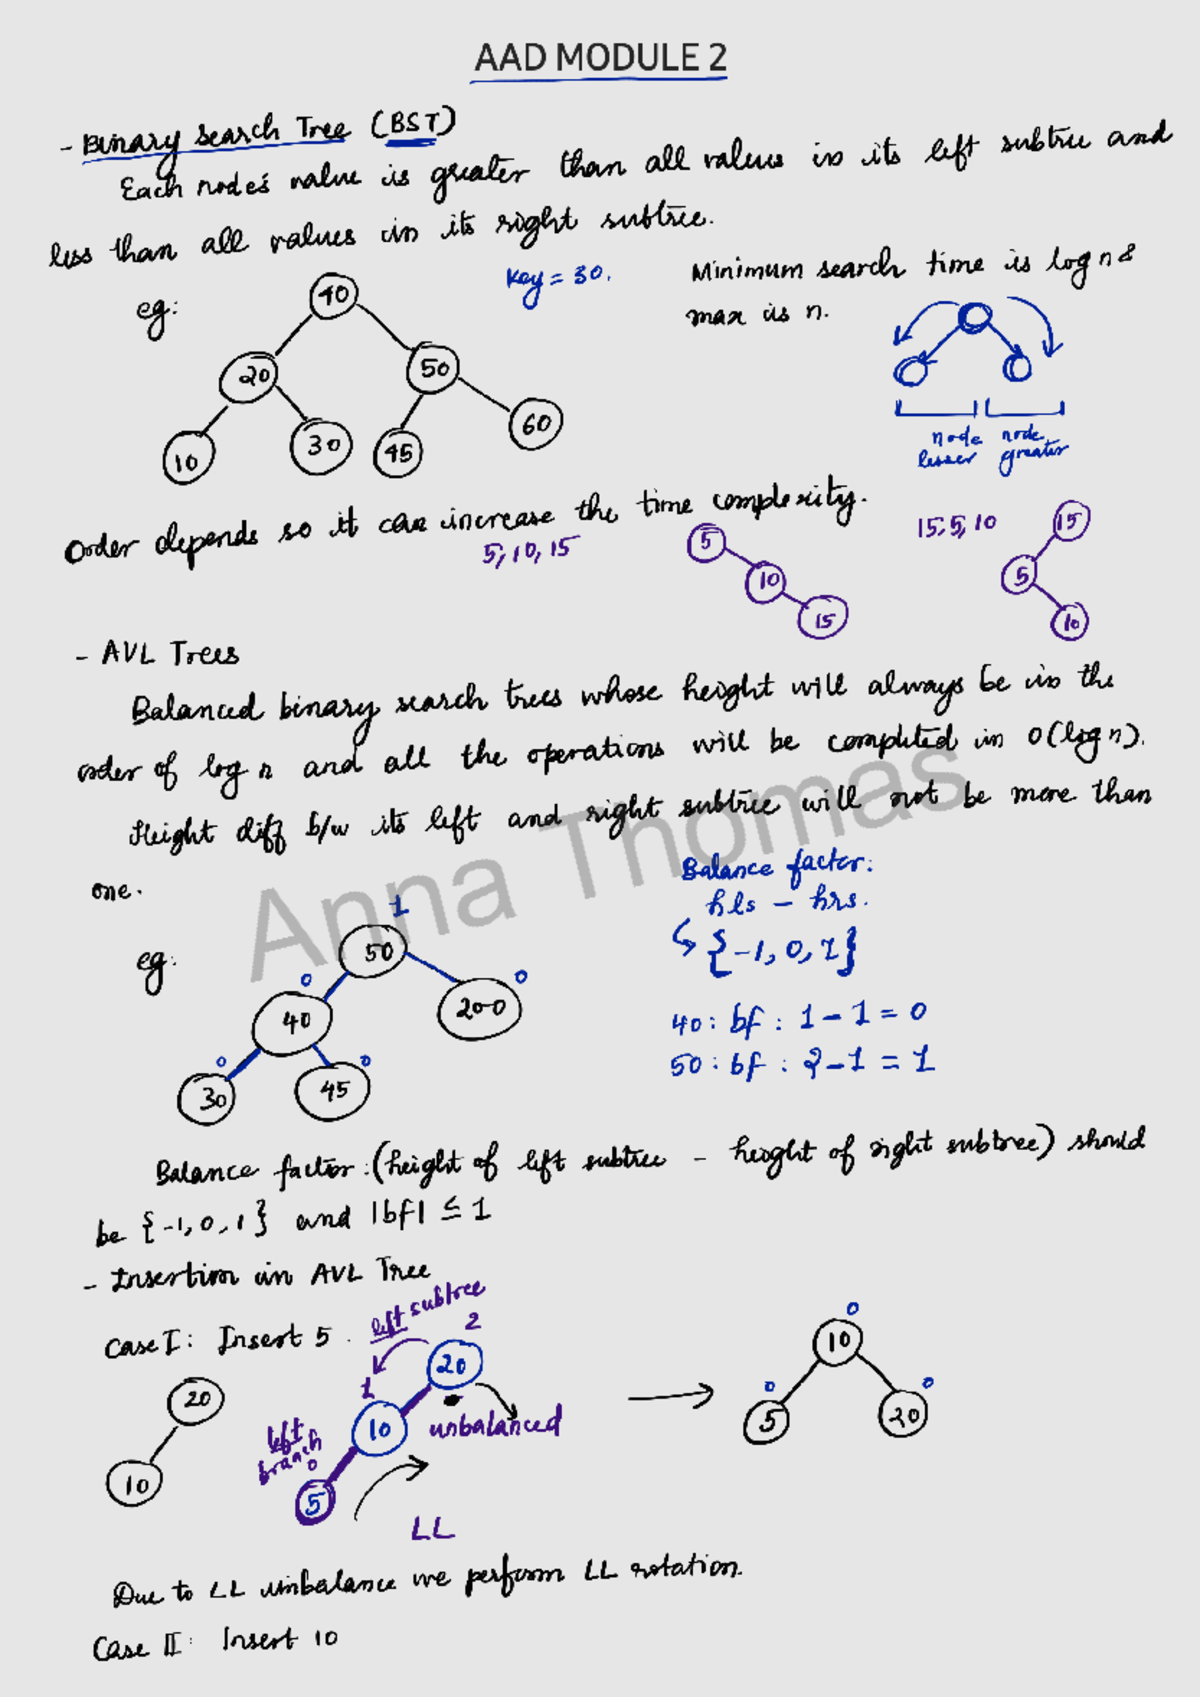 AAD MODULE 2
- Binary Search Tree (BST)
Each node's value is greater than all values in its left subtree and
less than all values in its right subtree.
eg:
40
20
50
10
30
45
60
Key = 30.
Minimum search time is log n &
max is n.
node lesser
node greater
Order depends so it can increase the time complexity.
5, 10, 15
5
10
15
15, 5, 10
15
5
10
- AVL Trees
Balanced binary search trees whose height will always be in the
order of log n and all the operations will be completed in O(log n).
Height diff b/w its left and right subtree will not be more than
one.
Anna Thomas
eg:
1
50
0
40
0
200
0
30
0
45
Balance factor:
hls - hrs.
{-1, 0, 1}
40: bf: 1 - 1 = 0
50: bf: 2 - 1 = 1
Balance factor: (height of left subtree - height of right subtree) should
be {-1, 0, 1} and |bf| ≤ 1
- Insertion in AVL Tree
Case I: Insert 5.
20
10
left subtree
2
20
1
10
unbalanced
left branch
0
5
LL
0
10
0
5
0
20
Due to LL unbalance we perform LL rotation.
Case II: Insert 10